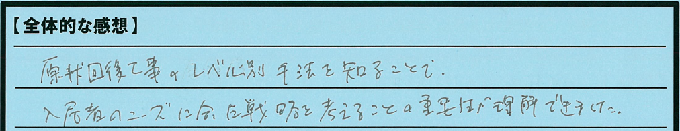 【全体的な感想】
原状回復工事のレベル別手法を知ることで、
入居者のニーズに合った戦略を考えることの重要性が理解できました。